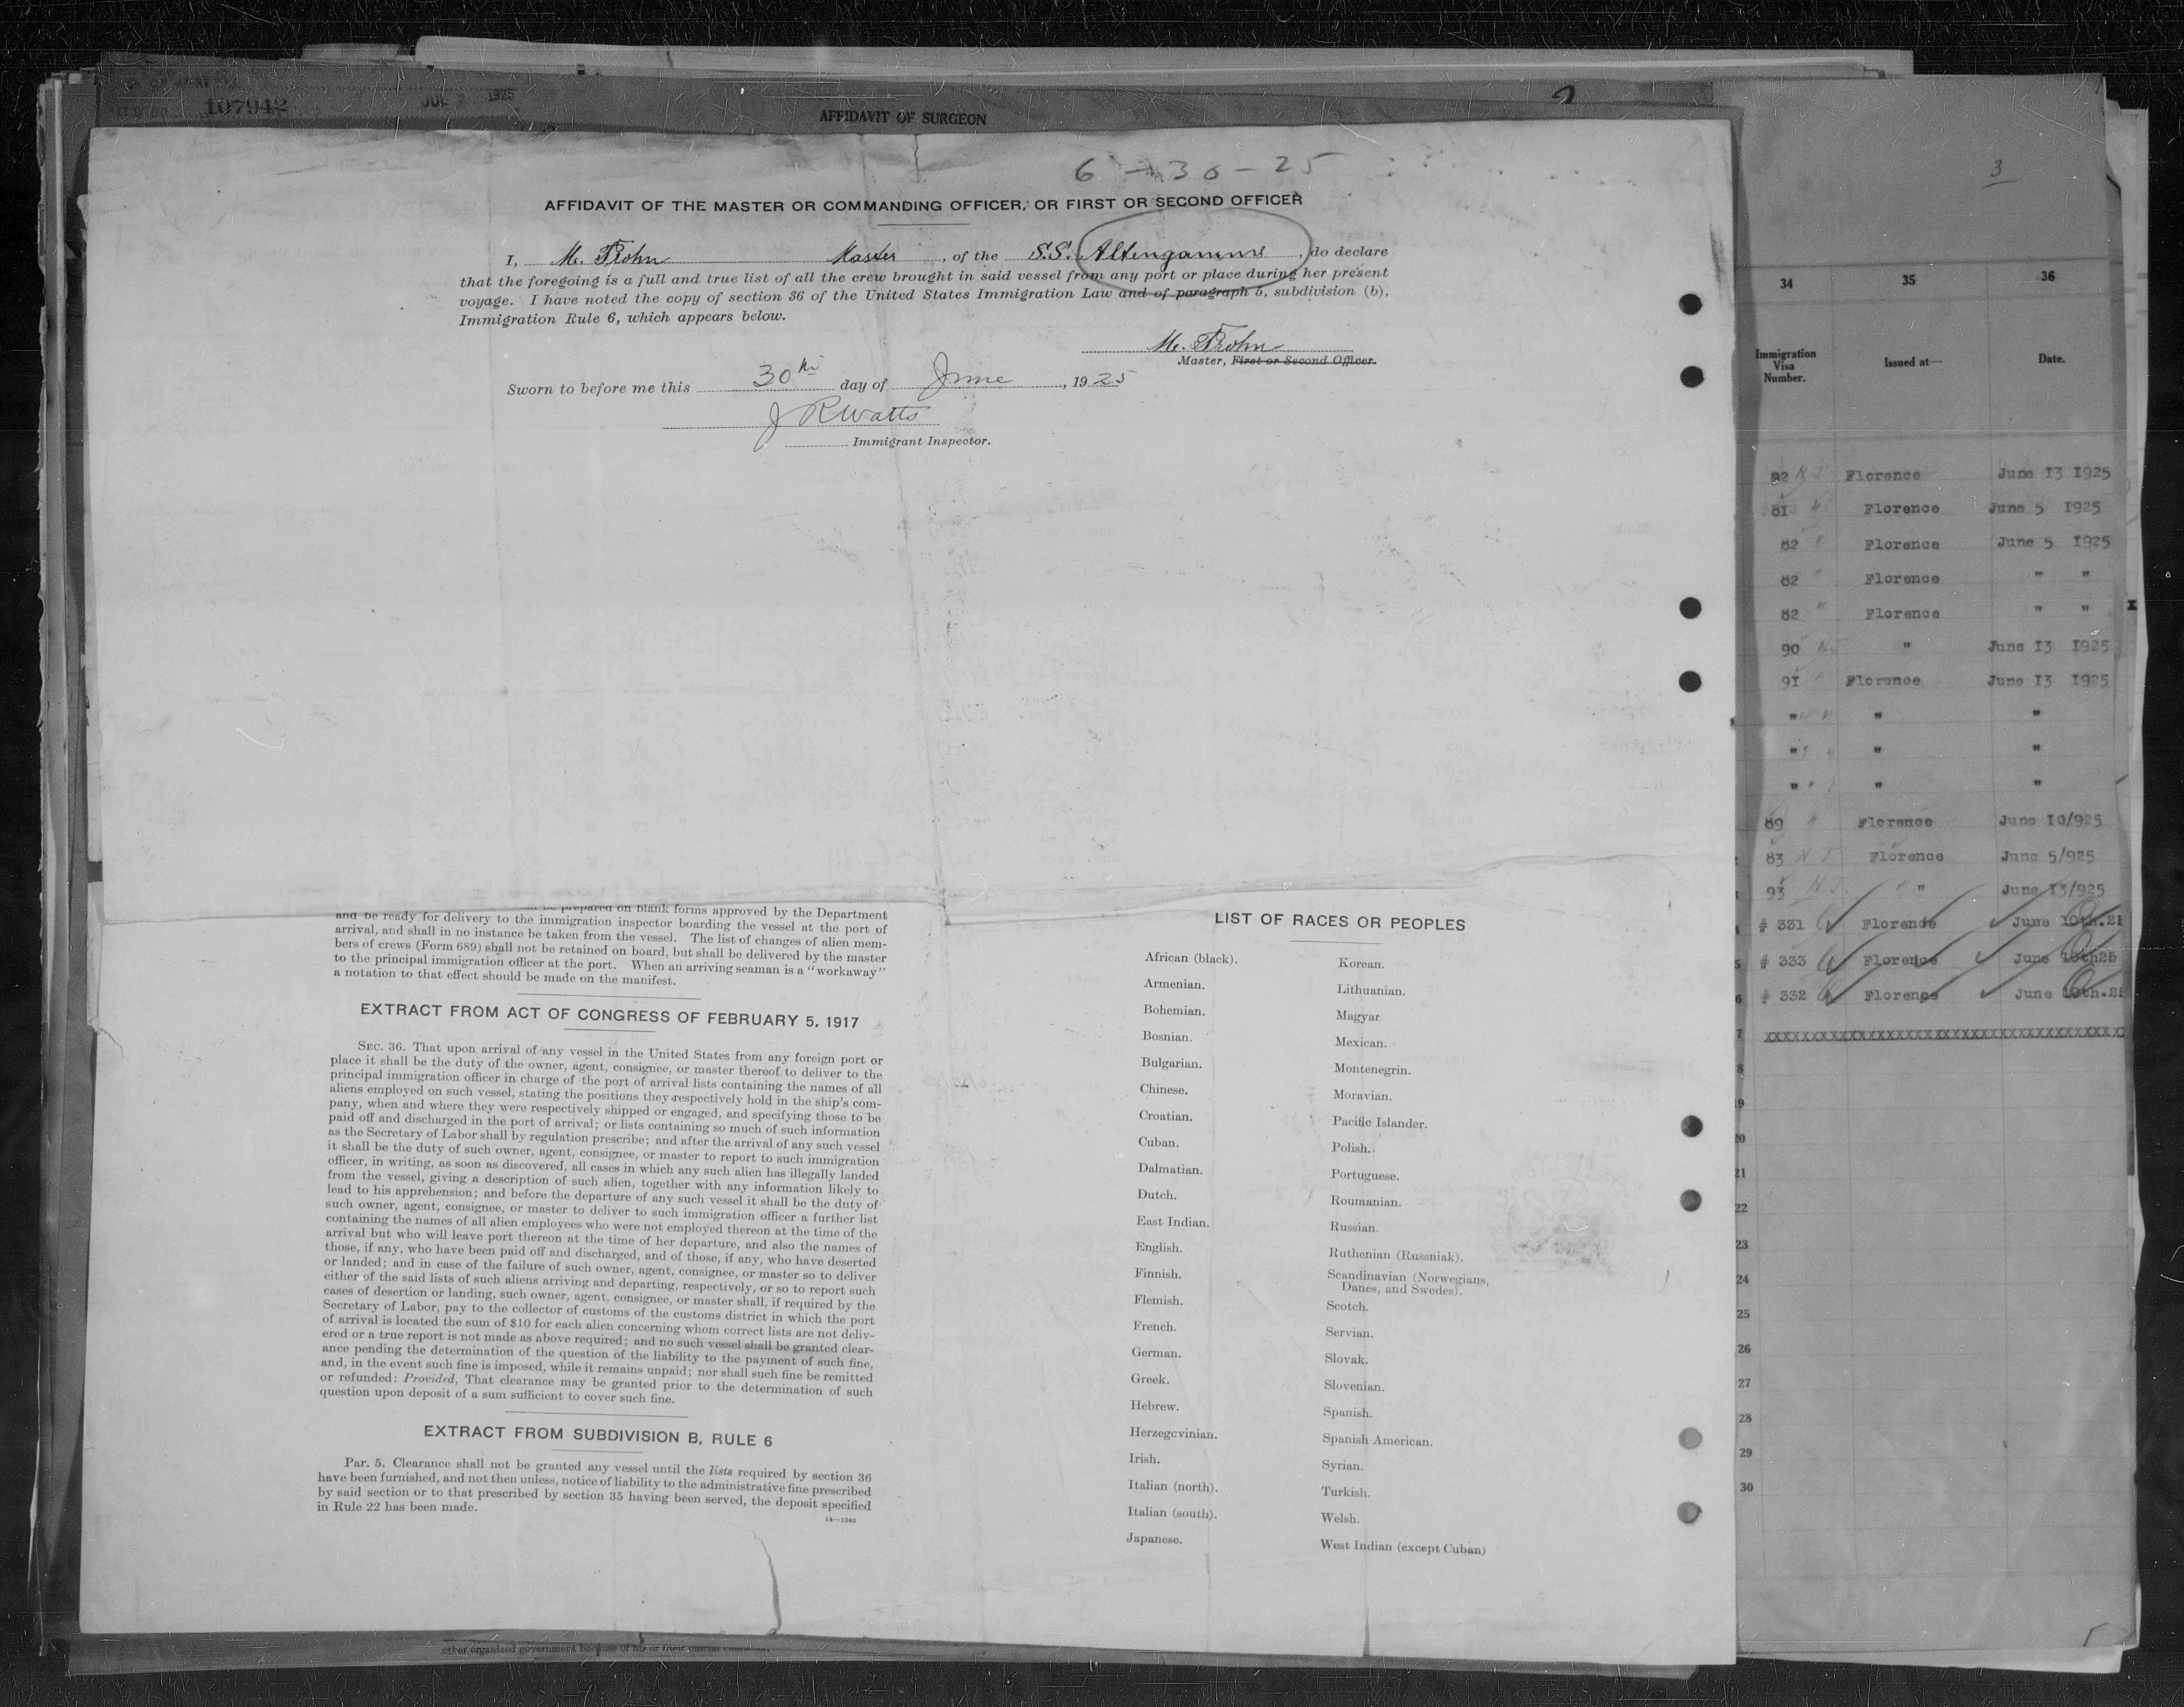 107942
JUL 2 1925
AFFIDAVIT OF SURGEON
6-30-25
AFFIDAVIT OF THE MASTER OR COMMANDING OFFICER, OR FIRST OR SECOND OFFICER
I, M. Master, of the S.S. Altengamme, do declare
that the foregoing is a full and true list of all the crew brought in said vessel from any port or place during her present
voyage. I have noted the copy of section 36 of the United States Immigration Law and of paragraph 5, subdivision (b),
Immigration Rule 6, which appears below.
M.
Master, First or Second Officer.
Sworn to before me this 30th day of June, 1925
J R Watts
Immigrant Inspector.
be prepared on blank forms approved by the Department
and be ready for delivery to the immigration inspector boarding the vessel at the port of
arrival, and shall in no instance be taken from the vessel. The list of changes of alien mem-
bers of crews (Form 689) shall not be retained on board, but shall be delivered by the master
to the principal immigration officer at the port. When an arriving seaman is a "workaway"
a notation to that effect should be made on the manifest.
EXTRACT FROM ACT OF CONGRESS OF FEBRUARY 5, 1917
SEC. 36. That upon arrival of any vessel in the United States from any foreign port or
place it shall be the duty of the owner, agent, consignee, or master thereof to deliver to the
principal immigration officer in charge of the port of arrival lists containing the names of all
aliens employed on such vessel, stating the positions they respectively hold in the ship's com-
pany, when and where they were respectively shipped or engaged, and specifying those to be
paid off and discharged in the port of arrival; or lists containing so much of such information
as the Secretary of Labor shall by regulation prescribe; and after the arrival of any such vessel
it shall be the duty of such owner, agent, consignee, or master to report to such immigration
officer, in writing, as soon as discovered, all cases in which any such alien has illegally landed
from the vessel, giving a description of such alien, together with any information likely to
lead to his apprehension; and before the departure of any such vessel it shall be the duty of
such owner, agent, consignee, or master to deliver to such immigration officer a further list
containing the names of all alien employees who were not employed thereon at the time of the
arrival but who will leave port thereon at the time of her departure, and also the names of
those, if any, who have been paid off and discharged, and of those, if any, who have deserted
or landed; and in case of the failure of such owner, agent, consignee, or master so to deliver
either of the said lists of such aliens arriving and departing, respectively, or so to report such
cases of desertion or landing, such owner, agent, consignee, or master shall, if required by the
Secretary of Labor, pay to the collector of customs of the customs district in which the port
of arrival is located the sum of $10 for each alien concerning whom correct lists are not deliv-
ered or a true report is not made as above required; and no such vessel shall be granted clear-
ance pending the determination of the question of the liability to the payment of such fine,
and, in the event such fine is imposed, while it remains unpaid; nor shall such fine be remitted
or refunded: Provided, That clearance may be granted prior to the determination of such
question upon deposit of a sum sufficient to cover such fine.
EXTRACT FROM SUBDIVISION B, RULE 6
Par. 5. Clearance shall not be granted any vessel until the lists required by section 36
have been furnished, and not then unless, notice of liability to the administrative fine prescribed
by said section or to that prescribed by section 35 having been served, the deposit specified
in Rule 22 has been made.
14-1240
LIST OF RACES OR PEOPLES
African (black).
Armenian.
Bohemian.
Bosnian.
Bulgarian.
Chinese.
Croatian.
Cuban.
Dalmatian.
Dutch.
East Indian.
English.
Finnish.
Flemish.
French.
German.
Greek.
Hebrew.
Herzegovinian.
Irish.
Italian (north).
Italian (south).
Japanese.
Korean.
Lithuanian.
Magyar
Mexican.
Montenegrin.
Moravian.
Pacific Islander.
Polish.
Portuguese.
Roumanian.
Russian.
Ruthenian (Russniak).
Scandinavian (Norwegians,
Danes, and Swedes).
Scotch.
Servian.
Slovak.
Slovenian.
Spanish.
Spanish American.
Syrian.
Turkish.
Welsh.
West Indian (except Cuban)
other organized government because of his or their official
3
34 35 36
Immigration Visa Number. Issued at— Date.
92 N J Florence June 13 1925
81 " Florence June 5 1925
82 " Florence June 5 1925
82 " Florence " "
82 " Florence " " X
90 " June 13 1925
91 Florence June 13 1925
" " "
" " "
" " "
89 " Florence June 10/925
83 N J Florence June 5/925
93 N J " " June 13/925
# 331 Florence June 10th.25
# 333 Florence June 10th25
# 332 Florence June 10th.25
7 XXXXXXXXXXXXXXXXXXXXXXXXXXXXXXXXXX
8
19
20
21
22
23
24
25
26
27
28
29
30